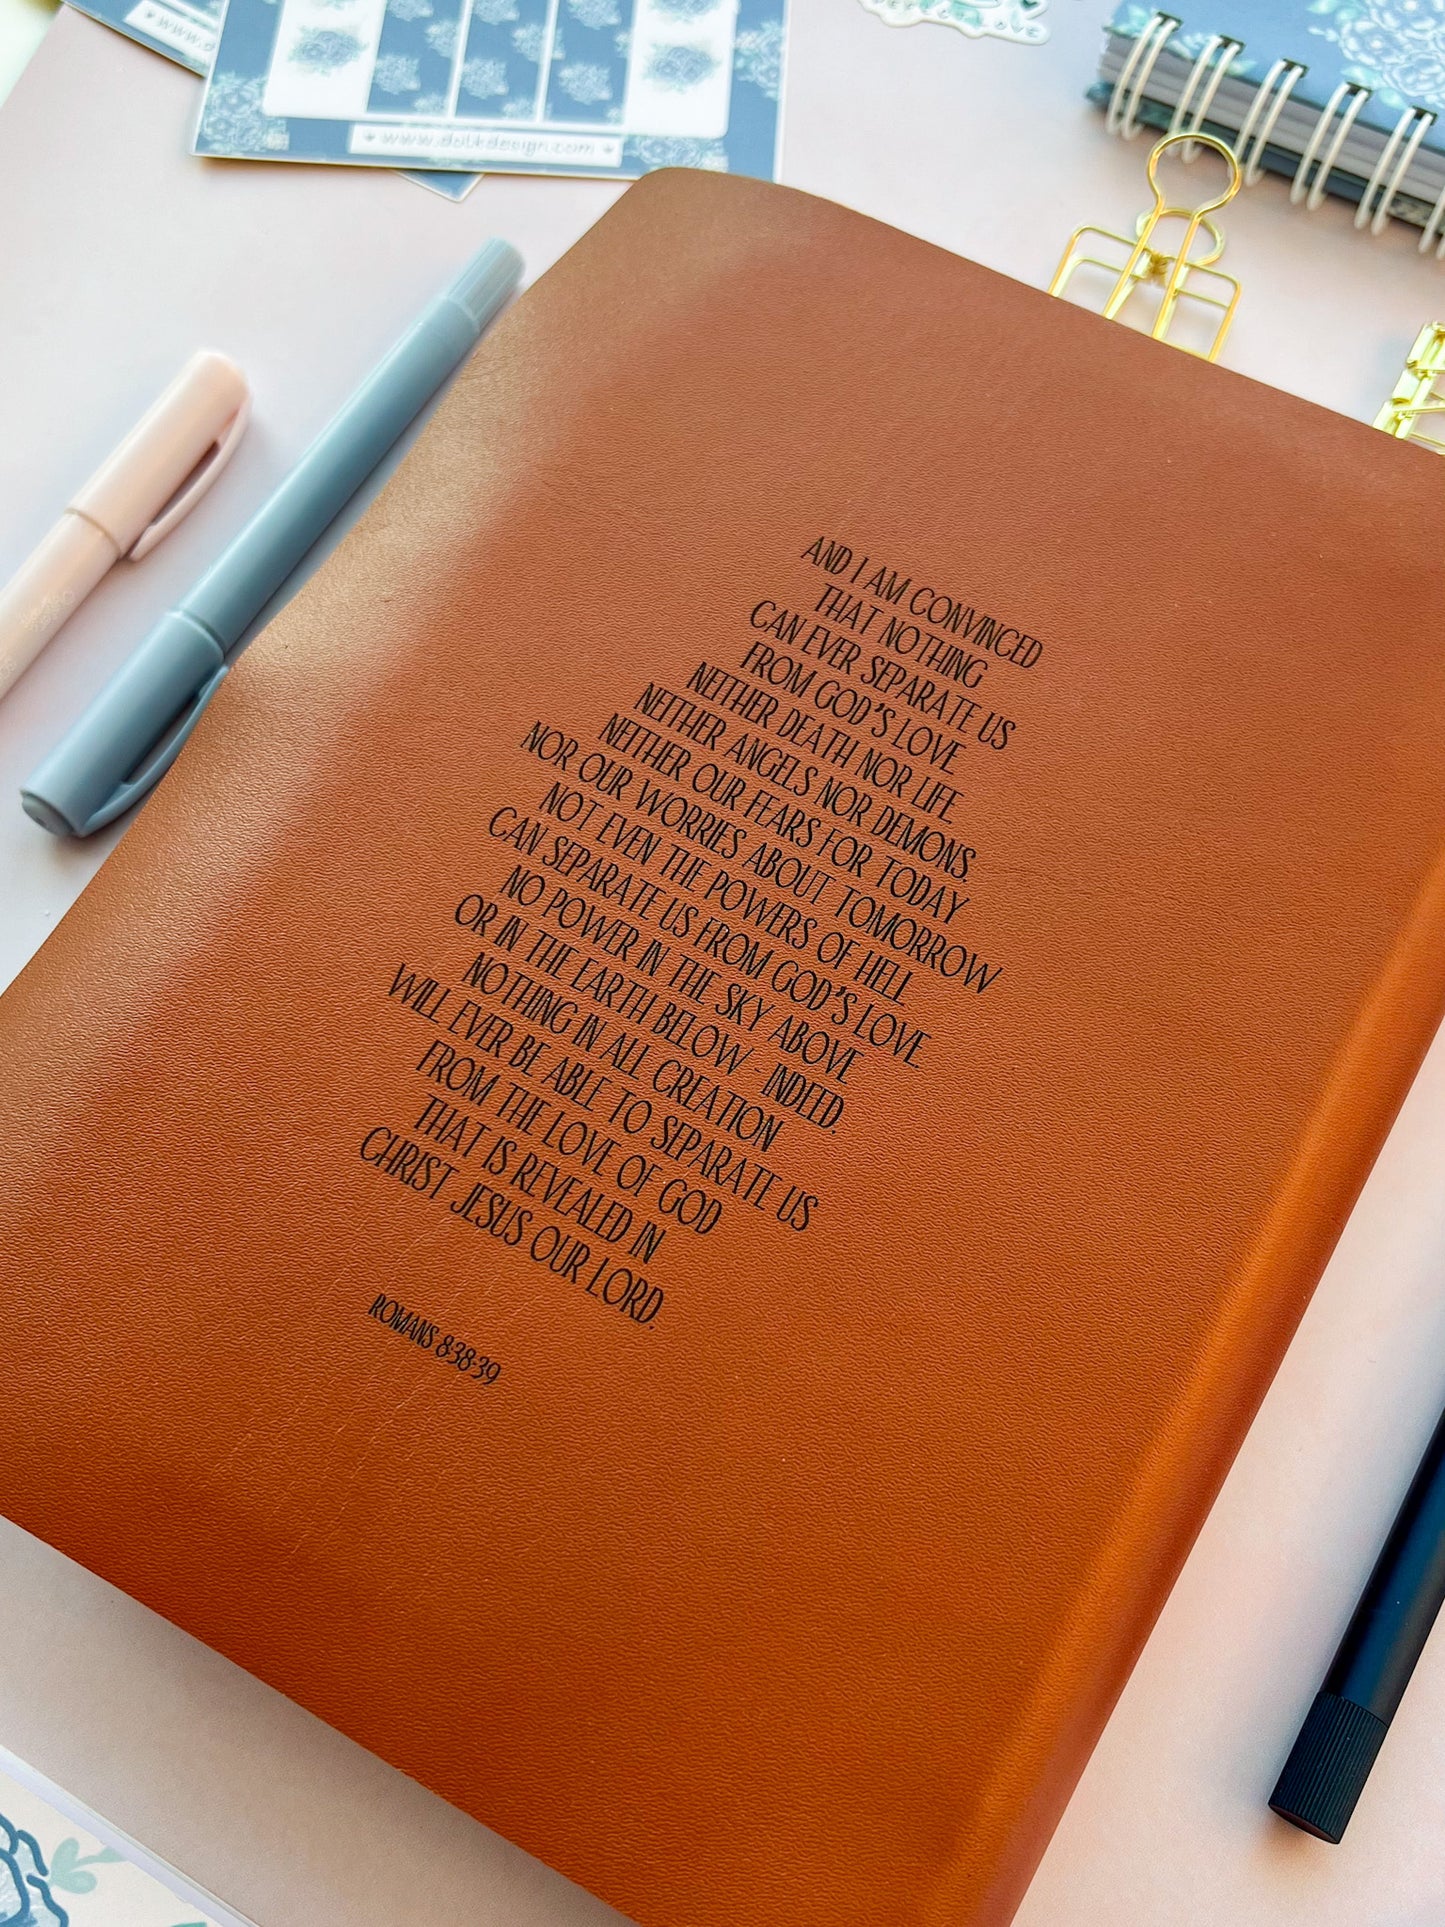 www.dotkdesign.com
AND I AM CONVINCED
THAT NOTHING
CAN EVER SEPARATE US
FROM GOD'S LOVE.
NEITHER DEATH NOR LIFE,
NEITHER ANGELS NOR DEMONS,
NEITHER OUR FEARS FOR TODAY
NOR OUR WORRIES ABOUT TOMORROW
NOT EVEN THE POWERS OF HELL
CAN SEPARATE US FROM GOD'S LOVE.
NO POWER IN THE SKY ABOVE
OR IN THE EARTH BELOW - INDEED,
NOTHING IN ALL CREATION
WILL EVER BE ABLE TO SEPARATE US
FROM THE LOVE OF GOD
THAT IS REVEALED IN
CHRIST JESUS OUR LORD.
ROMANS 8:38-39